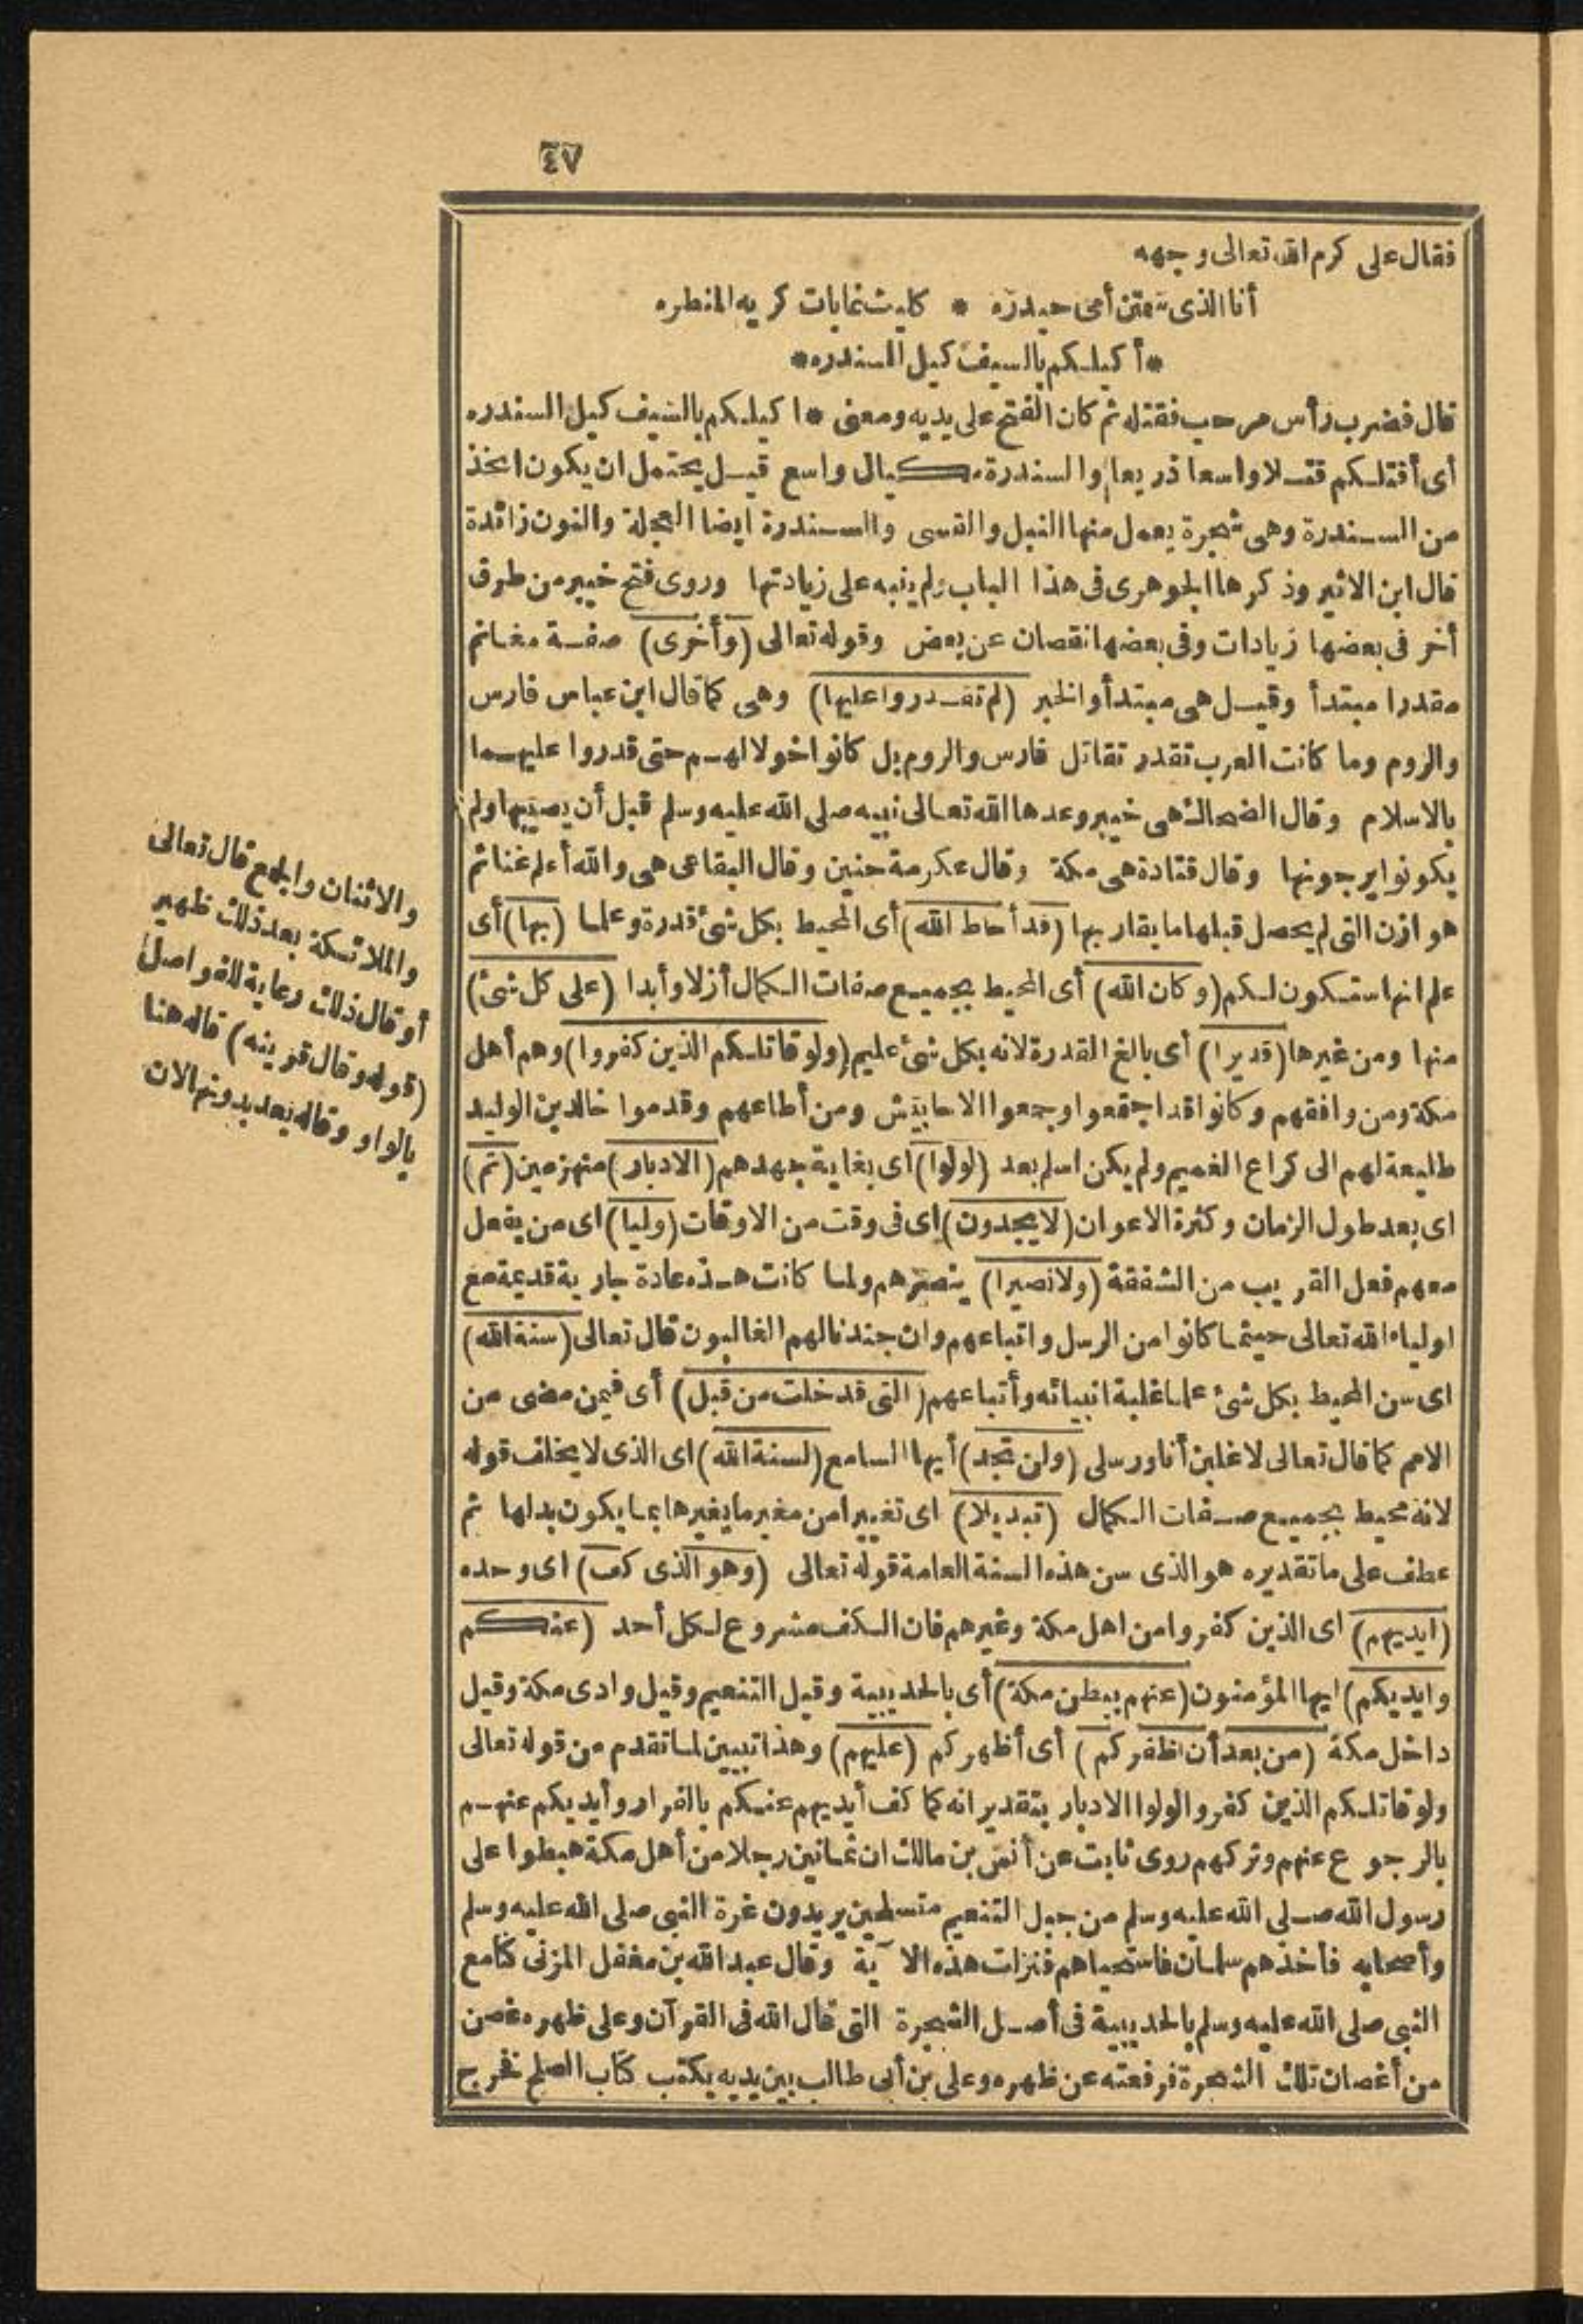 ٤٧
فقال على كرم الله تعالى وجهه
أنا الذى سمتن أمى حيدره * كليث غابات كريه المنظره
* أكيلكم بالسيف كيل السندره *
قال فضرب رأس مرحب فقتله ثم كان الفتح على يديه ومعنى * اكيلكم بالسيف كيل السندره
أى أقتلكم قتلا واسعا ذريعا والسندرة مكيال واسع قيل يحتمل ان يكون اتخذ
من السندرة وهى شجرة يعمل منها النبل والقسى والسندرة ايضا العجلة والنون زائدة
قال ابن الاثير وذكرها الجوهرى فى هذا الباب ولم ينبه على زيادتها وروى فتح خيبر من طرق
أخر فى بعضها زيادات وفى بعضها نقصان عن بعض وقوله تعالى (وأخرى) صفة مغانم
مقدرا مبتدأ وقيل هى مبتدأ والخبر (لم تقدروا عليها) وهى كما قال ابن عباس فارس
والروم وما كانت العرب تقدر تقاتل فارس والروم بل كانوا خولا لهم حتى قدروا عليهما
بالاسلام وقال الضحاك هى خيبر وعدها الله تعالى نبيه صلى الله عليه وسلم قبل أن يصيبها ولم
يكونوا يرجونها وقال قتادة هى مكة وقال عكرمة حنين وقال البقاعى هى والله أعلم غنائم
هوازن التى لم يحصل قبلها ما يقاربها (قد أحاط الله) أى المحيط بكل شئ قدرة وعلما (بها) أى
علم انها ستكون لكم (وكان الله) أى المحيط بجميع صفات الكمال أزلا وأبدا (على كل شئ)
منها ومن غيرها (قديرا) أى بالغ القدرة لانه بكل شئ عليم (ولو قاتلكم الذين كفروا) وهم أهل
مكة ومن وافقهم وكانوا قد اجتمعوا وجمعوا الاحابيش ومن أطاعهم وقدموا خالد بن الوليد
طليعة لهم الى كراع الغميم ولم يكن اسلم بعد (لولوا) اى بغاية جهدهم (الادبار) منهزمين (ثم)
اى بعد طول الزمان وكثرة الاعوان (لا يجدون) اى فى وقت من الاوقات (وليا) اى من يفعل
معهم فعل القريب من الشفقة (ولا نصيرا) ينصرهم ولما كانت هذه عادة جارية قديمة مع
اولياء الله تعالى حيثما كانوا من الرسل واتباعهم وان جندنا لهم الغالبون قال تعالى (سنة الله)
اى سن المحيط بكل شئ علما غلبة انبيائه وأتباعهم (التى قد خلت من قبل) أى فيمن مضى من
الامم كما قال تعالى لاغلبن أنا ورسلى (ولن تجد) أيها السامع (لسنة الله) اى الذى لا يخلف قوله
لانه محيط بجميع صفات الكمال (تبديلا) اى تغييرا من مغير ما يغيرها بما يكون بدلها ثم
عطف على ما تقديره هو الذى سن هذه السنة العامة قوله تعالى (وهو الذى كف) اى وحده
(ايديهم) اى الذين كفروا من اهل مكة وغيرهم فان الكف مشروع لكل أحد (عنكم
وايديكم) ايها المؤمنون (عنهم ببطن مكة) أى بالحديبية وقيل التنعيم وقيل وادى مكة وقيل
داخل مكة (من بعد أن اظفركم) أى أظهركم (عليهم) وهذا تبيين لما تقدم من قوله تعالى
ولو قاتلكم الذين كفروا لولوا الادبار بتقدير انه كما كف أيديهم عنكم بالفرار وأيديكم عنهم
بالرجوع عنهم وتركهم روى ثابت عن أنس بن مالك ان ثمانين رجلا من أهل مكة هبطوا على
رسول الله صلى الله عليه وسلم من جبل التنعيم متسلحين يريدون غرة النبى صلى الله عليه وسلم
وأصحابه فأخذهم سلمان فاستحياهم فنزلت هذه الآية وقال عبد الله بن مغفل المزنى كنا مع
النبى صلى الله عليه وسلم بالحديبية فى أصل الشجرة التى قال الله فى القرآن وعلى ظهره غصن
من أغصان تلك الشجرة فرفعته عن ظهره وعلى بن أبى طالب بين يديه يكتب كتاب الصلح فخرج
والاثنان والجمع قال تعالى
والملائكة بعد ذلك ظهير
أو قال ذلك رعاية للفواصل
(قوله وقال قرينه) قاله هنا
بالواو وقاله بعد بدونها لان